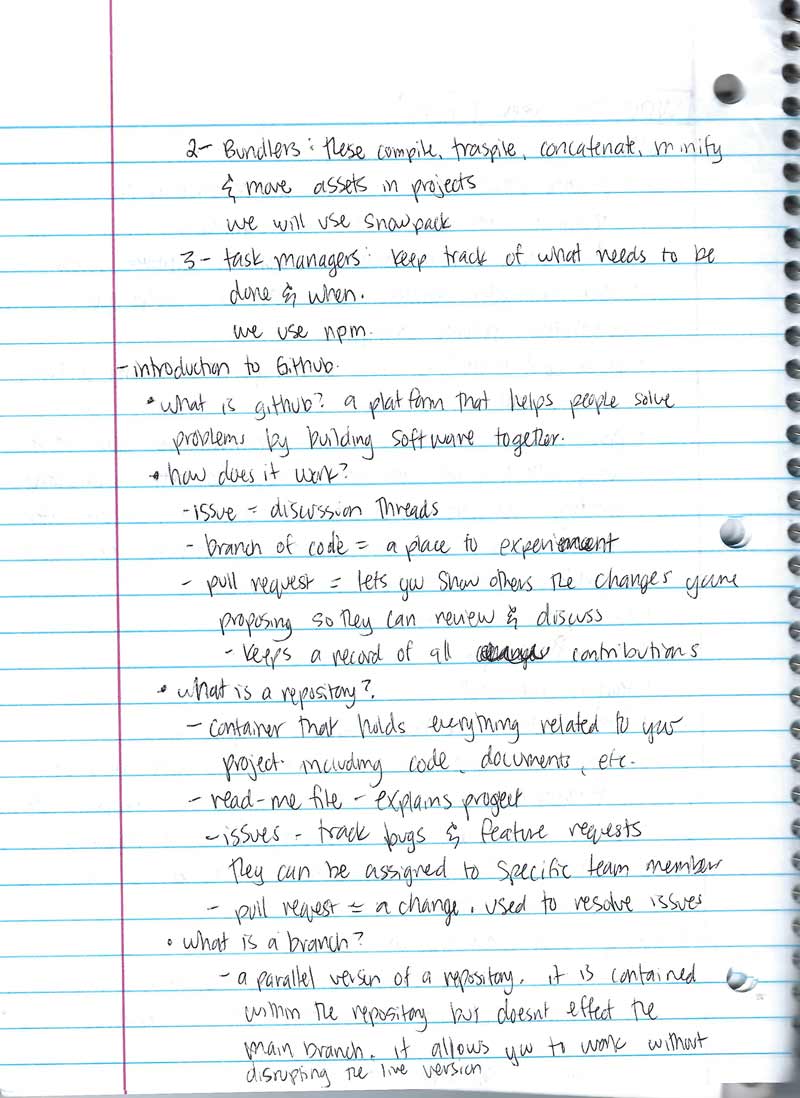 2- Bundlers: these compile, traspile, concatenate, minify
& move assets in projects
we will use snowpack
3- task managers: keep track of what needs to be
done & when.
we use npm.
- introduction to Github.
• what is github? a platform that helps people solve
problems by building software together.
• how does it work?
- issue = discussion threads
- branch of code = a place to experiment
- pull request = lets you show others the changes youre
proposing so they can review & discuss
- keeps a record of all contributions
• what is a repository?
- container that holds everything related to your
project including code, documents, etc.
- read-me file - explains project
- issues - track bugs & feature requests
they can be assigned to specific team member
- pull request = a change, used to resolve issues
• what is a branch?
- a parallel versin of a repository. it is contained
within the repository but doesnt effect the
main branch. it allows you to work without
disrupting the live version